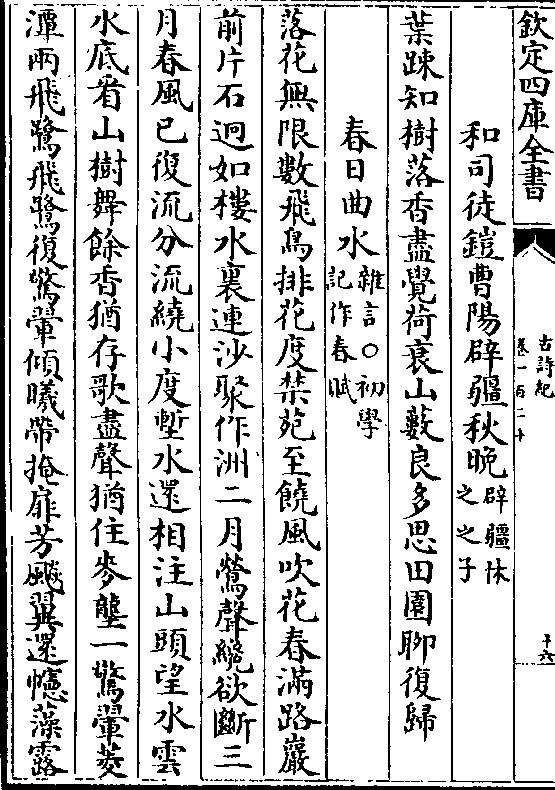 欽定四庫全書
古詩紀
卷一百二十
十六
和司徒鎧曹陽辟疆秋晚辟疆休之之子
葉踈知樹落香盡覺荷衰山藪良多思田園聊復歸
春日曲水雜言○初學記作春賦
落花無限數飛鳥排花度禁苑至饒風吹花春滿路巖
前片石迥如樓水裏連沙聚作洲二月鶯聲纔欲斷三
月春風已復流分流繞小度塹水還相注山頭望水雲
水底看山樹舞餘香猶存歌盡聲猶住麥壟一驚翬菱
潭兩飛鷺飛鷺復驚翬傾曦帶掩扉芳飈翼還幰藻露